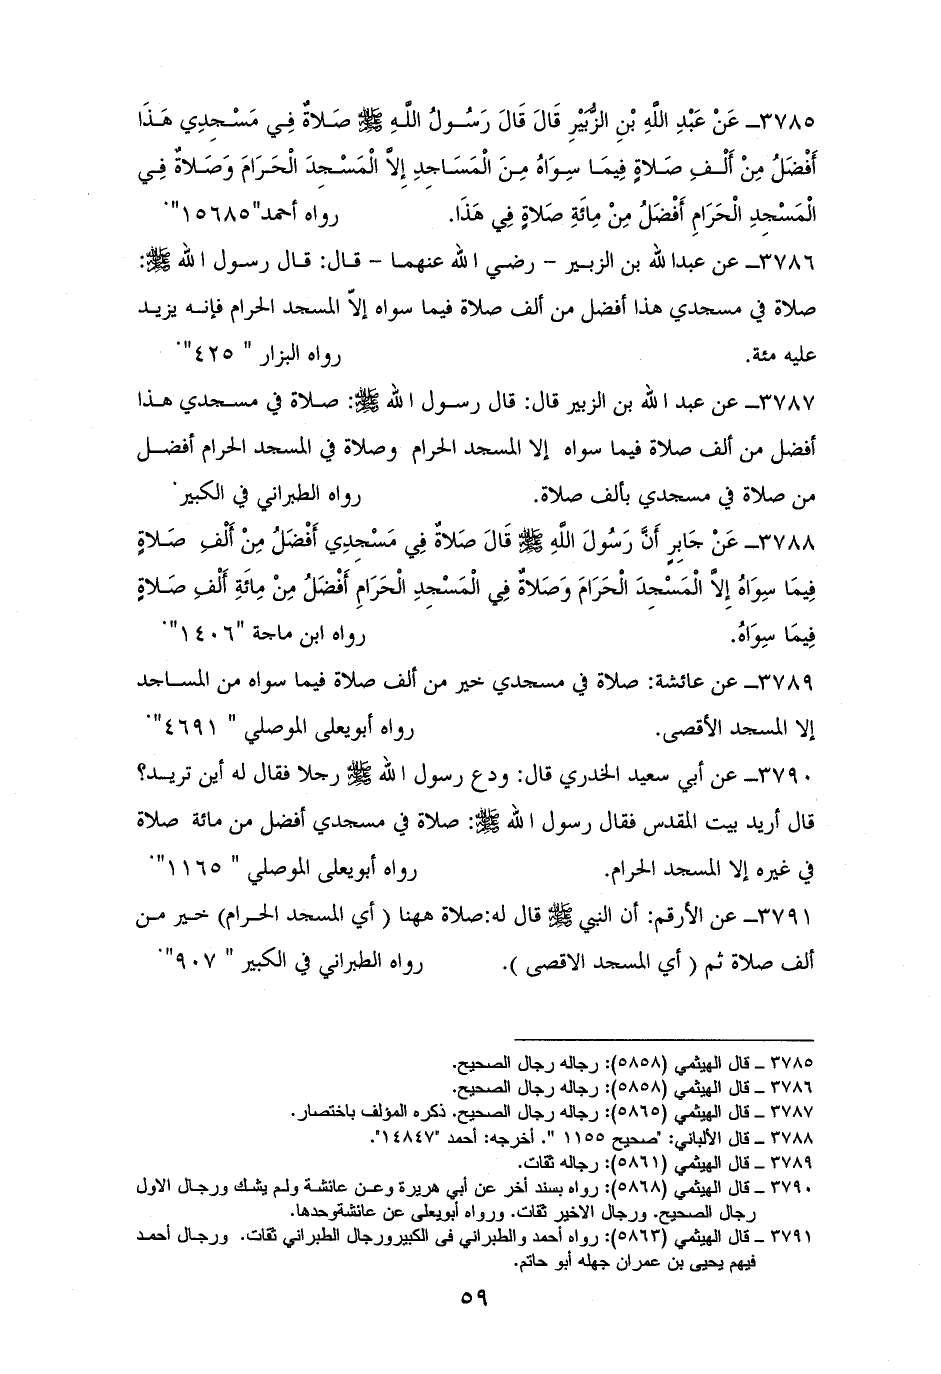 ٣٧٨٥ــ عَنْ عَبْدِ اللَّهِ بْنِ الزُّبَيْرِ قَالَ قَالَ رَسُولُ اللَّهِ ﷺ صَلاةٌ فِي مَسْجِدِي هَذَا
أَفْضَلُ مِنْ أَلْفِ صَلاةٍ فِيمَا سِوَاهُ مِنَ الْمَسَاجِدِ إِلاَّ الْمَسْجِدَ الْحَرَامَ وَصَلاةٌ فِي
الْمَسْجِدِ الْحَرَامِ أَفْضَلُ مِنْ مِائَةِ صَلاةٍ فِي هَذَا. رواه أحمد"١٥٦٨٥".
٣٧٨٦ــ عن عبدالله بن الزبير – رضي الله عنهما – قال: قال رسول الله ﷺ:
صلاة في مسجدي هذا أفضل من ألف صلاة فيما سواه إلاّ المسجد الحرام فإنه يزيد
عليه مئة. رواه البزار " ٤٢٥".
٣٧٨٧ــ عن عبد الله بن الزبير قال: قال رسول الله ﷺ: صلاة في مسجدي هذا
أفضل من ألف صلاة فيما سواه إلا المسجد الحرام وصلاة في المسجد الحرام أفضل
من صلاة في مسجدي بألف صلاة. رواه الطبراني في الكبير.
٣٧٨٨ــ عَنْ جَابِرٍ أَنَّ رَسُولَ اللَّهِ ﷺ قَالَ صَلاةٌ فِي مَسْجِدِي أَفْضَلُ مِنْ أَلْفِ صَلاةٍ
فِيمَا سِوَاهُ إِلاَّ الْمَسْجِدَ الْحَرَامَ وَصَلاةٌ فِي الْمَسْجِدِ الْحَرَامِ أَفْضَلُ مِنْ مِائَةِ أَلْفِ صَلاةٍ
فِيمَا سِوَاهُ. رواه ابن ماجة "١٤٠٦".
٣٧٨٩ــ عن عائشة: صلاة في مسجدي خير من ألف صلاة فيما سواه من المساجد
إلا المسجد الأقصى. رواه أبويعلى الموصلي " ٤٦٩١".
٣٧٩٠ــ عن أبي سعيد الخدري قال: ودع رسول الله ﷺ رجلا فقال له أين تريد؟
قال أريد بيت المقدس فقال رسول الله ﷺ: صلاة في مسجدي أفضل من مائة صلاة
في غيره إلا المسجد الحرام. رواه أبويعلى الموصلي " ١١٦٥".
٣٧٩١ــ عن الأرقم: أن النبي ﷺ قال له:صلاة ههنا ( أي المسجد الحرام) خير من
ألف صلاة ثم ( أي المسجد الاقصى ). رواه الطبراني في الكبير " ٩٠٧".
٣٧٨٥ ــ قال الهيثمي (٥٨٥٨): رجاله رجال الصحيح.
٣٧٨٦ ــ قال الهيثمي (٥٨٥٨): رجاله رجال الصحيح.
٣٧٨٧ ــ قال الهيثمي (٥٨٦٥): رجاله رجال الصحيح. ذكره المؤلف باختصار.
٣٧٨٨ ــ قال الألباني: "صحيح ١١٥٥ ". أخرجه: أحمد "١٤٨٤٧".
٣٧٨٩ ــ قال الهيثمي (٥٨٦١): رجاله ثقات.
٣٧٩٠ ــ قال الهيثمي (٥٨٦٨): رواه بسند أخر عن أبي هريرة وعن عائشة ولم يشك ورجال الاول
رجال الصحيح. ورجال الاخير ثقات. ورواه أبويعلى عن عائشةوحدها.
٣٧٩١ ــ قال الهيثمي (٥٨٦٣): رواه أحمد والطبراني فى الكبيرورجال الطبراني ثقات. ورجال أحمد
فيهم يحيى بن عمران جهله أبو حاتم.
٥٩